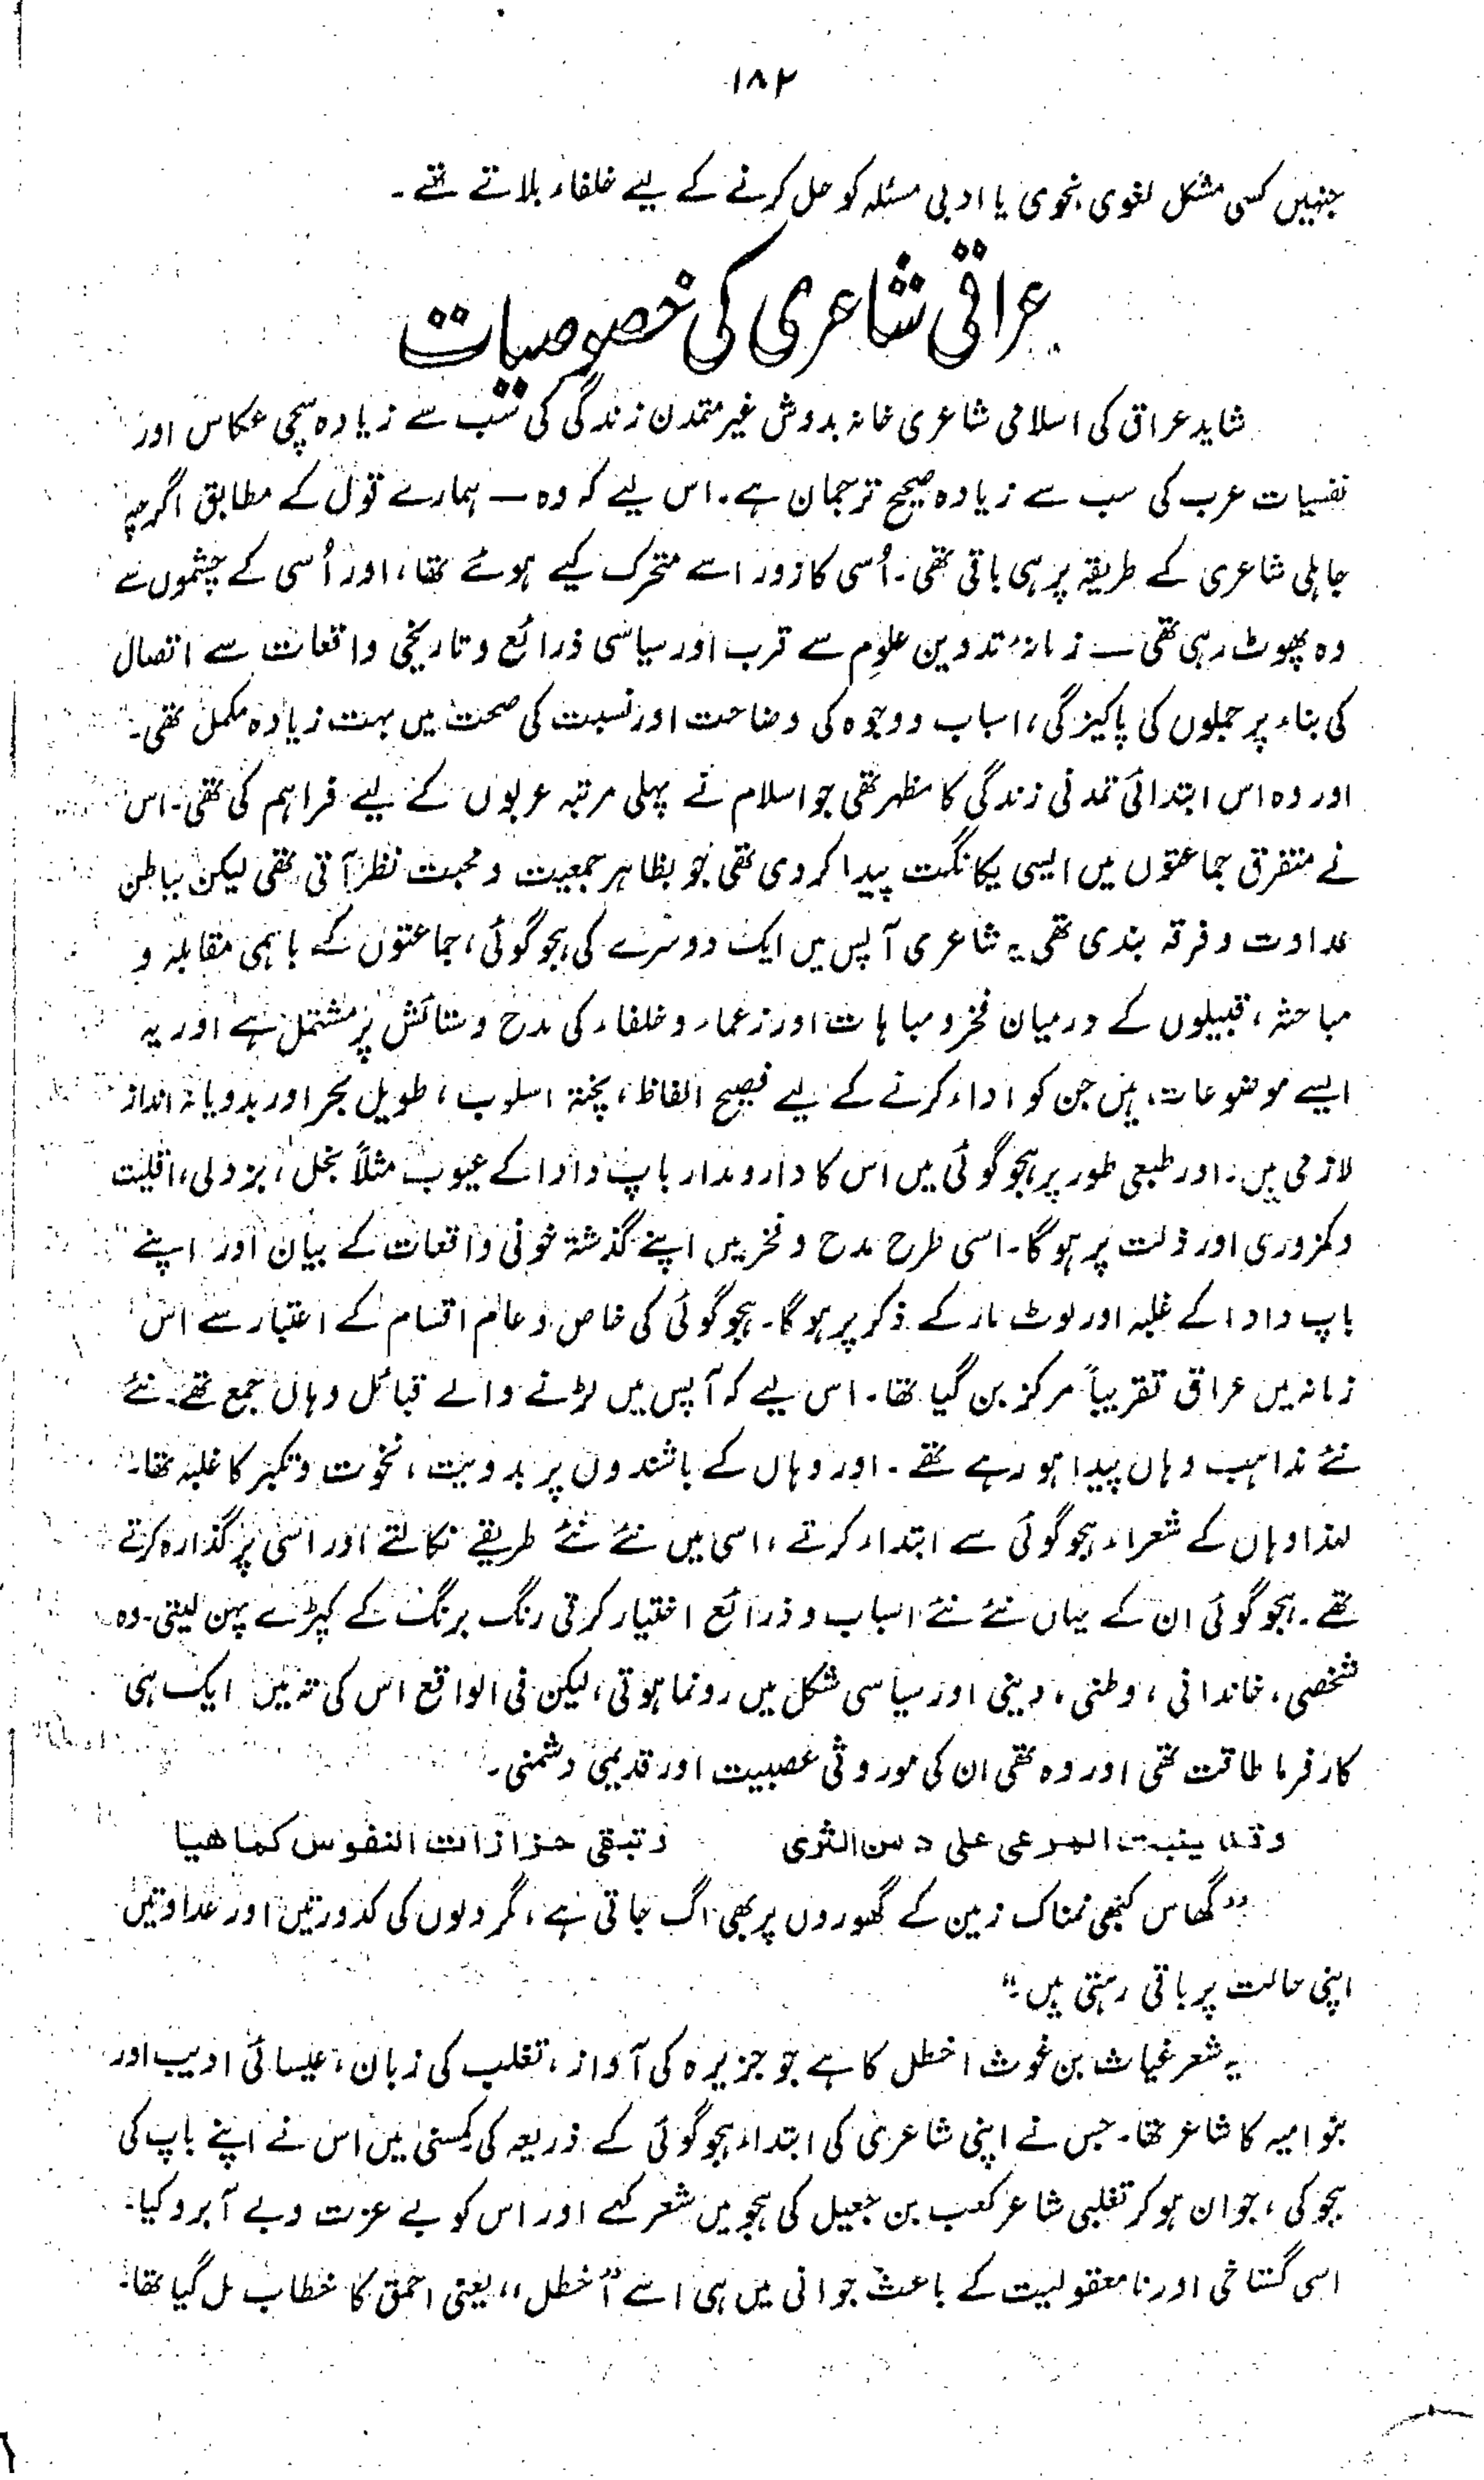 ۱۸۲
جنہیں کسی مشکل لغوی نحوی یا ادبی مسئلہ کو حل کرنے کے لیے خلفاء بلاتے تھے۔
عراقی شاعری کی خصوصیات
شاید عراق کی اسلامی شاعری خانہ بدوش غیر متمدن زندگی کی سب سے زیادہ سچی عکاس اور
نفسیات عرب کی سب سے زیادہ صحیح ترجمان ہے۔ اس لیے کہ وہ — ہمارے قول کے مطابق اگرچہ
جاہلی شاعری کے طریقہ پر ہی باقی تھی۔ اُسی کا زور اسے متحرک کیے ہوئے تھا، اور اُسی کے چشموں سے
وہ پھوٹ رہی تھی — زمانۂ تدوین علوم سے قرب اور سیاسی ذرائع و تاریخی واقعات سے اتصال
کی بناء پر جملوں کی پاکیزگی، اسباب و وجوہ کی وضاحت اور نسبت کی صحت میں بہت زیادہ مکمل تھی۔
اور وہ اس ابتدائی تمدنی زندگی کا مظہر تھی جو اسلام نے پہلی مرتبہ عربوں کے لیے فراہم کی تھی۔ اس
نے متفرق جماعتوں میں ایسی یگانگت پیدا کر دی تھی جو بظاہر جمعیت و محبت نظر آتی تھی لیکن بباطن
عداوت و فرقہ بندی تھی یہ شاعری آپس میں ایک دوسرے کی ہجو گوئی، جماعتوں کے باہمی مقابلہ و
مباحثہ، قبیلوں کے درمیان فخر و مباہات اور زعماء و خلفاء کی مدح و ستائش پر مشتمل ہے اور یہ
ایسے موضوعات ہیں جن کو اداء کرنے کے لیے فصیح الفاظ، پختہ اسلوب، طویل بحر اور بدویانہ انداز
لازمی ہیں۔ اور طبعی طور پر ہجو گوئی میں اس کا دار و مدار باپ دادا کے عیوب مثلاً بخل، بزدلی، اقلیت
و کمزوری اور ذلت پر ہو گا۔ اسی طرح مدح و فخر میں اپنے گذشتہ خونی واقعات کے بیان اور اپنے
باپ دادا کے غلبہ اور لوٹ مار کے ذکر پر ہو گا۔ ہجو گوئی کی خاص و عام اقسام کے اعتبار سے اس
زمانہ میں عراق تقریباً مرکز بن گیا تھا۔ اس لیے کہ آپس میں لڑنے والے قبائل وہاں جمع تھے۔ نئے
نئے مذاہب وہاں پیدا ہو رہے تھے۔ اور وہاں کے باشندوں پر بدویت، نخوت و تکبر کا غلبہ تھا۔
لہذا وہاں کے شعراء ہجو گوئی سے ابتداء کرتے، اسی میں نئے نئے طریقے نکالتے اور اسی پر گذارہ کرتے
تھے۔ ہجو گوئی ان کے یہاں نئے نئے اسباب و ذرائع اختیار کرتی رنگ برنگ کے کپڑے پہن لیتی۔ وہ
شخصی، خاندانی، وطنی، دینی اور سیاسی شکل میں رونما ہوتی، لیکن فی الواقع اس کی تہ میں ایک ہی
کارفرما طاقت تھی اور وہ تھی ان کی موروثی عصبیت اور قدیمی دشمنی۔
وقد ینبت المرعی علی دمن الثری وتبقی حزازات النفوس کما ھیا
”گھاس کبھی نمناک زمین کے گھوروں پر بھی اگ جاتی ہے، مگر دلوں کی کدورتیں اور عداوتیں
اپنی حالت پر باقی رہتی ہیں۔“
یہ شعر غیاث بن غوث اخطل کا ہے جو جزیرہ کی آواز، تغلب کی زبان، عیسائی ادیب اور
بنو امیہ کا شاعر تھا۔ جس نے اپنی شاعری کی ابتداء ہجو گوئی کے ذریعہ کی کمسنی میں اس نے اپنے باپ کی
ہجو کی، جوان ہو کر تغلبی شاعر کعب بن جعیل کی ہجو میں شعر کہے اور اس کو بے عزت و بے آبرو کیا۔
اسی گستاخی اور نامعقولیت کے باعث جوانی میں ہی اسے ”اخطل“ یعنی احمق کا خطاب مل گیا تھا۔